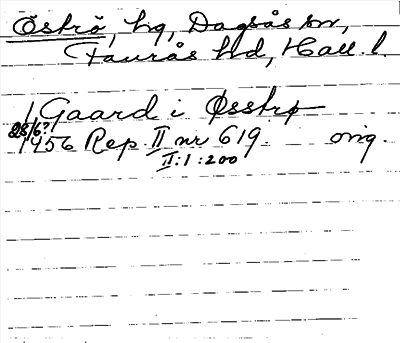 Öströ, hg, Dagsås sn,
Faurås hd, Hall. l.
1 Gaard i Øsstrø
28/6? 1456 Rep. II nr 619. orig.
II:1:200